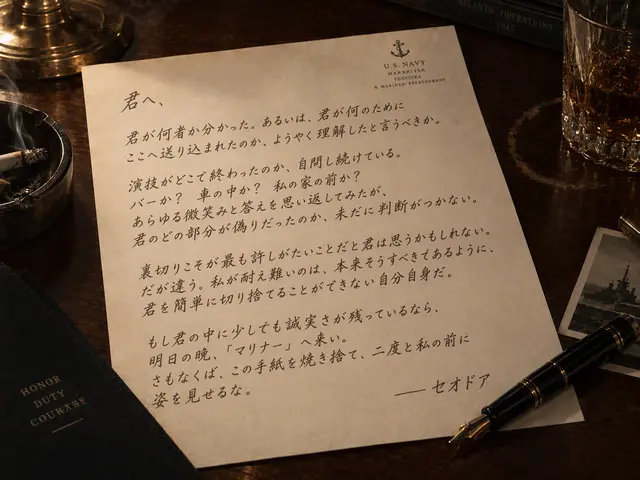 ATLANTIC OPERATIONS
1945
U.S. NAVY
君へ、
君が何者か分かった。あるいは、君が何のために
ここへ送り込まれたのか、ようやく理解したと言うべきか。
演技がどこで終わったのか、自問し続けている。
バーか？ 車の中か？ 私の家の前か？
あらゆる微笑みと答えを思い返してみたが、
君のどの部分が偽りだったのか、未だに判断がつかない。
裏切りこそが最も許しがたいことだと君は思うかもしれない。
だが違う。私が耐え難いのは、本来そうすべきであるように、
君を簡単に切り捨てることができない自分自身だ。
もし君の中に少しでも誠実さが残っているなら、
明日の晩、「マリナー」へ来い。
さもなくば、この手紙を焼き捨て、二度と私の前に
姿を見せるな。
── セオドア
HONOR
DUTY